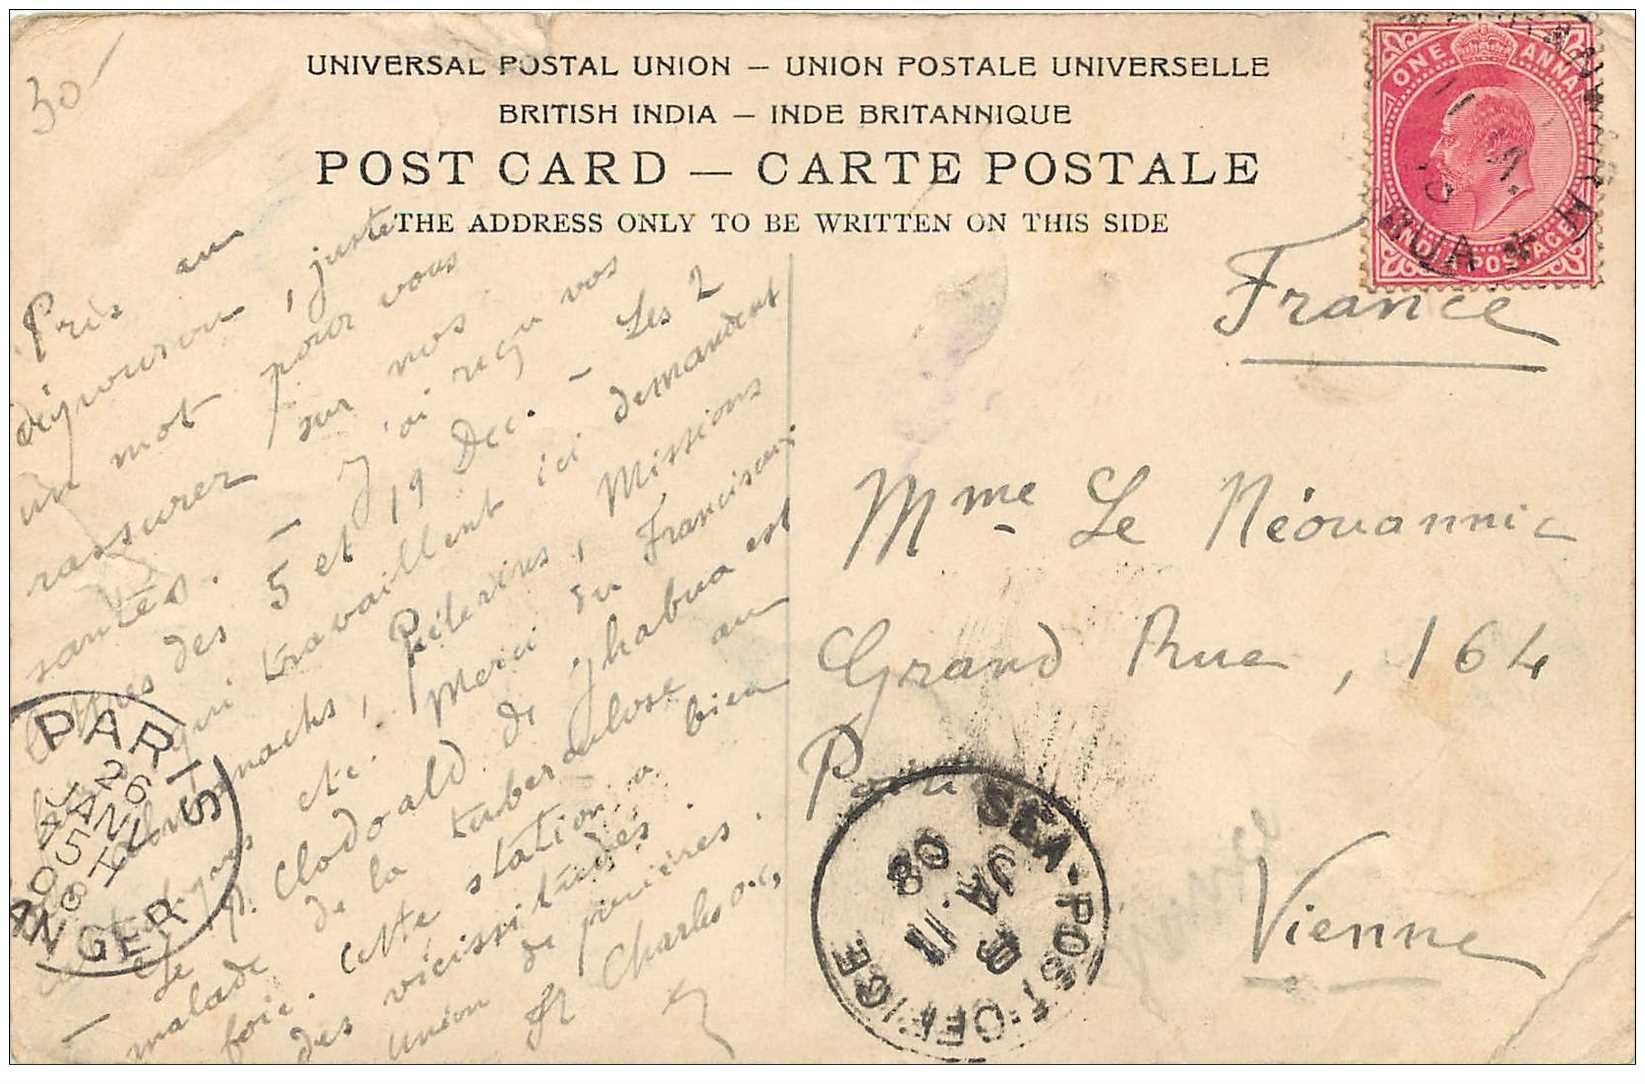 30-
UNIVERSAL POSTAL UNION — UNION POSTALE UNIVERSELLE
BRITISH INDIA — INDE BRITANNIQUE
POST CARD — CARTE POSTALE
THE ADDRESS ONLY TO BE WRITTEN ON THIS SIDE
ONE ANNA
INDIA POSTAGE
BUA
11 JA
France
Pris au
dépourvu, juste
un mot pour vous
rassurer sur nos
santés. — J'ai reçu vos
lettres des 5 et 19 Dec. — Les 2
qui travaillent ici demandent
Almanachs, Pèlerins, Missions
etc. Merci du Franciscain
— Le P. Clodoald de Jhabua est
malade de la tuberculose au
foie. Cette station a bien
des vicissitudes.
union de prières.
fr Charles o.c.
Mme Le Néouannic
Grand Rue, 164
Poitiers
Vienne
PARIS
26
JANV
5 H
08
ETRANGER
SEA-POST-OFFICE
B
11 JA
08